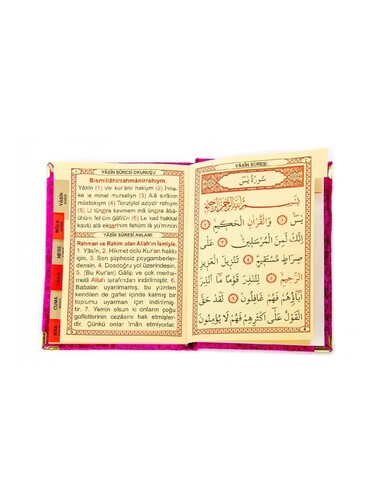 YÂSÎN SÛRESİ OKUNUŞU
Bismillâhirrahmânirrahıym.
Yâsîn (1) Vel kur'âni hakiym (2) İnne-
ke le minel murseliyn (3) Alâ sırâtım
mustekıym (4) Tenziylel aziyzir rahiym
(5) Li tünzira kavmem mâ ünzira âbâ-
ühüm fehüm ğâfilûn (6) Le kad hakkal
kavlü alâ ekserihim fehüm lâ yü'minûn
YÂSÎN SÛRESİ ANLAMI
Rahman ve Rahîm olan Allah'ın İsmiyle.
1. Yâsîn, 2. Hikmet dolu Kur'an hakkı
için, 3. Sen şüphesiz peygamberler-
densin. 4. Dosdoğru yol üzerindesin.
5. (Bu Kur'an) Gâlip ve çok merhamet-
li Allah tarafından indirilmiştir. 6.
Babaları uyarılmamış, bu yüzden
kendileri de gaflet içinde kalmış bir
toplumu uyarman için indirilmiş-
tir. 7. Yemin olsun ki onların çoğu
gafletlerinin cezasını hak etmişler-
dir. Çünkü onlar îman etmiyorlar.
YÂSÎN
MÜLK
NEBE
CUMA
YÂSÎN SÛRESİ
سُورَةُ يٰسٓ
بِسْمِ اللّٰهِ الرَّحْمٰنِ الرَّحِيمِ
يٰسٓ ﴿١﴾ وَالْقُرْاٰنِ الْحَكِيمِ ﴿٢﴾
اِنَّكَ لَمِنَ الْمُرْسَلِينَ ﴿٣﴾ عَلٰى
صِرَاطٍ مُسْتَقِيمٍ ﴿٤﴾ تَنْزِيلَ الْعَزِيزِ
الرَّحِيمِ ﴿٥﴾ لِتُنْذِرَ قَوْمًا مَٓا اُنْذِرَ
اٰبَٓاؤُهُمْ فَهُمْ غَافِلُونَ ﴿٦﴾ لَقَدْ حَقَّ
الْقَوْلُ عَلٰٓى اَكْثَرِهِمْ فَهُمْ لَا يُؤْمِنُونَ